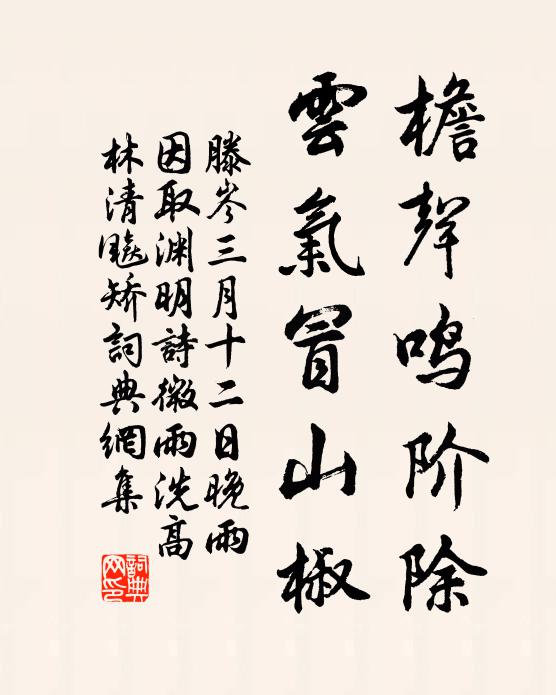 檐聲鸣阶除
雲氣冒山椒
滕岑三月十二日晚雨
因取渊明詩微雨洗高
林清飈矫詞典網集
詞典网印